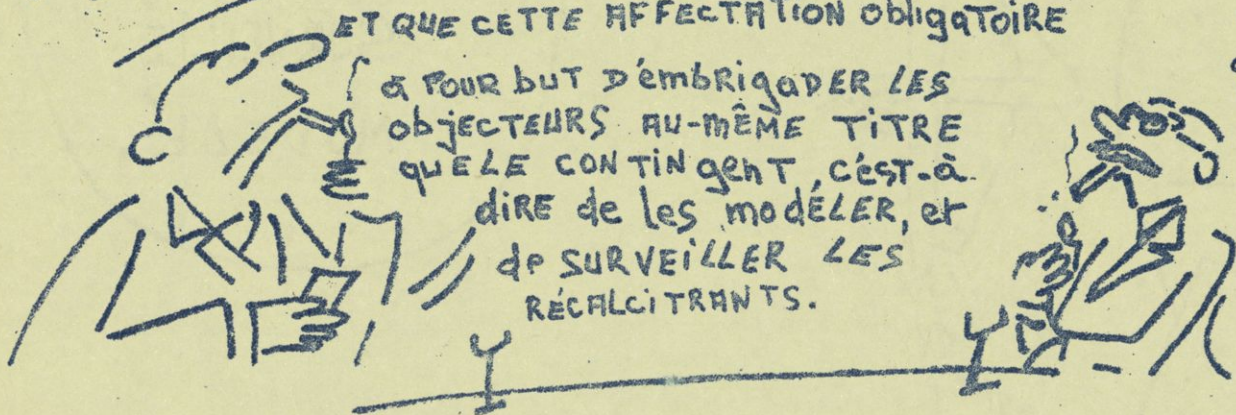 ET QUE CETTE AFFECTATION ObligaToiRE
a POUR buT D'émbRigaDER LES
objECTEURS AU-MÊME TiTRE
quELE CONTINgenT, c'éST-à
diRE de les modÉLER, et
de SURVEiLLER LES
RÉCALCiTRANTS.